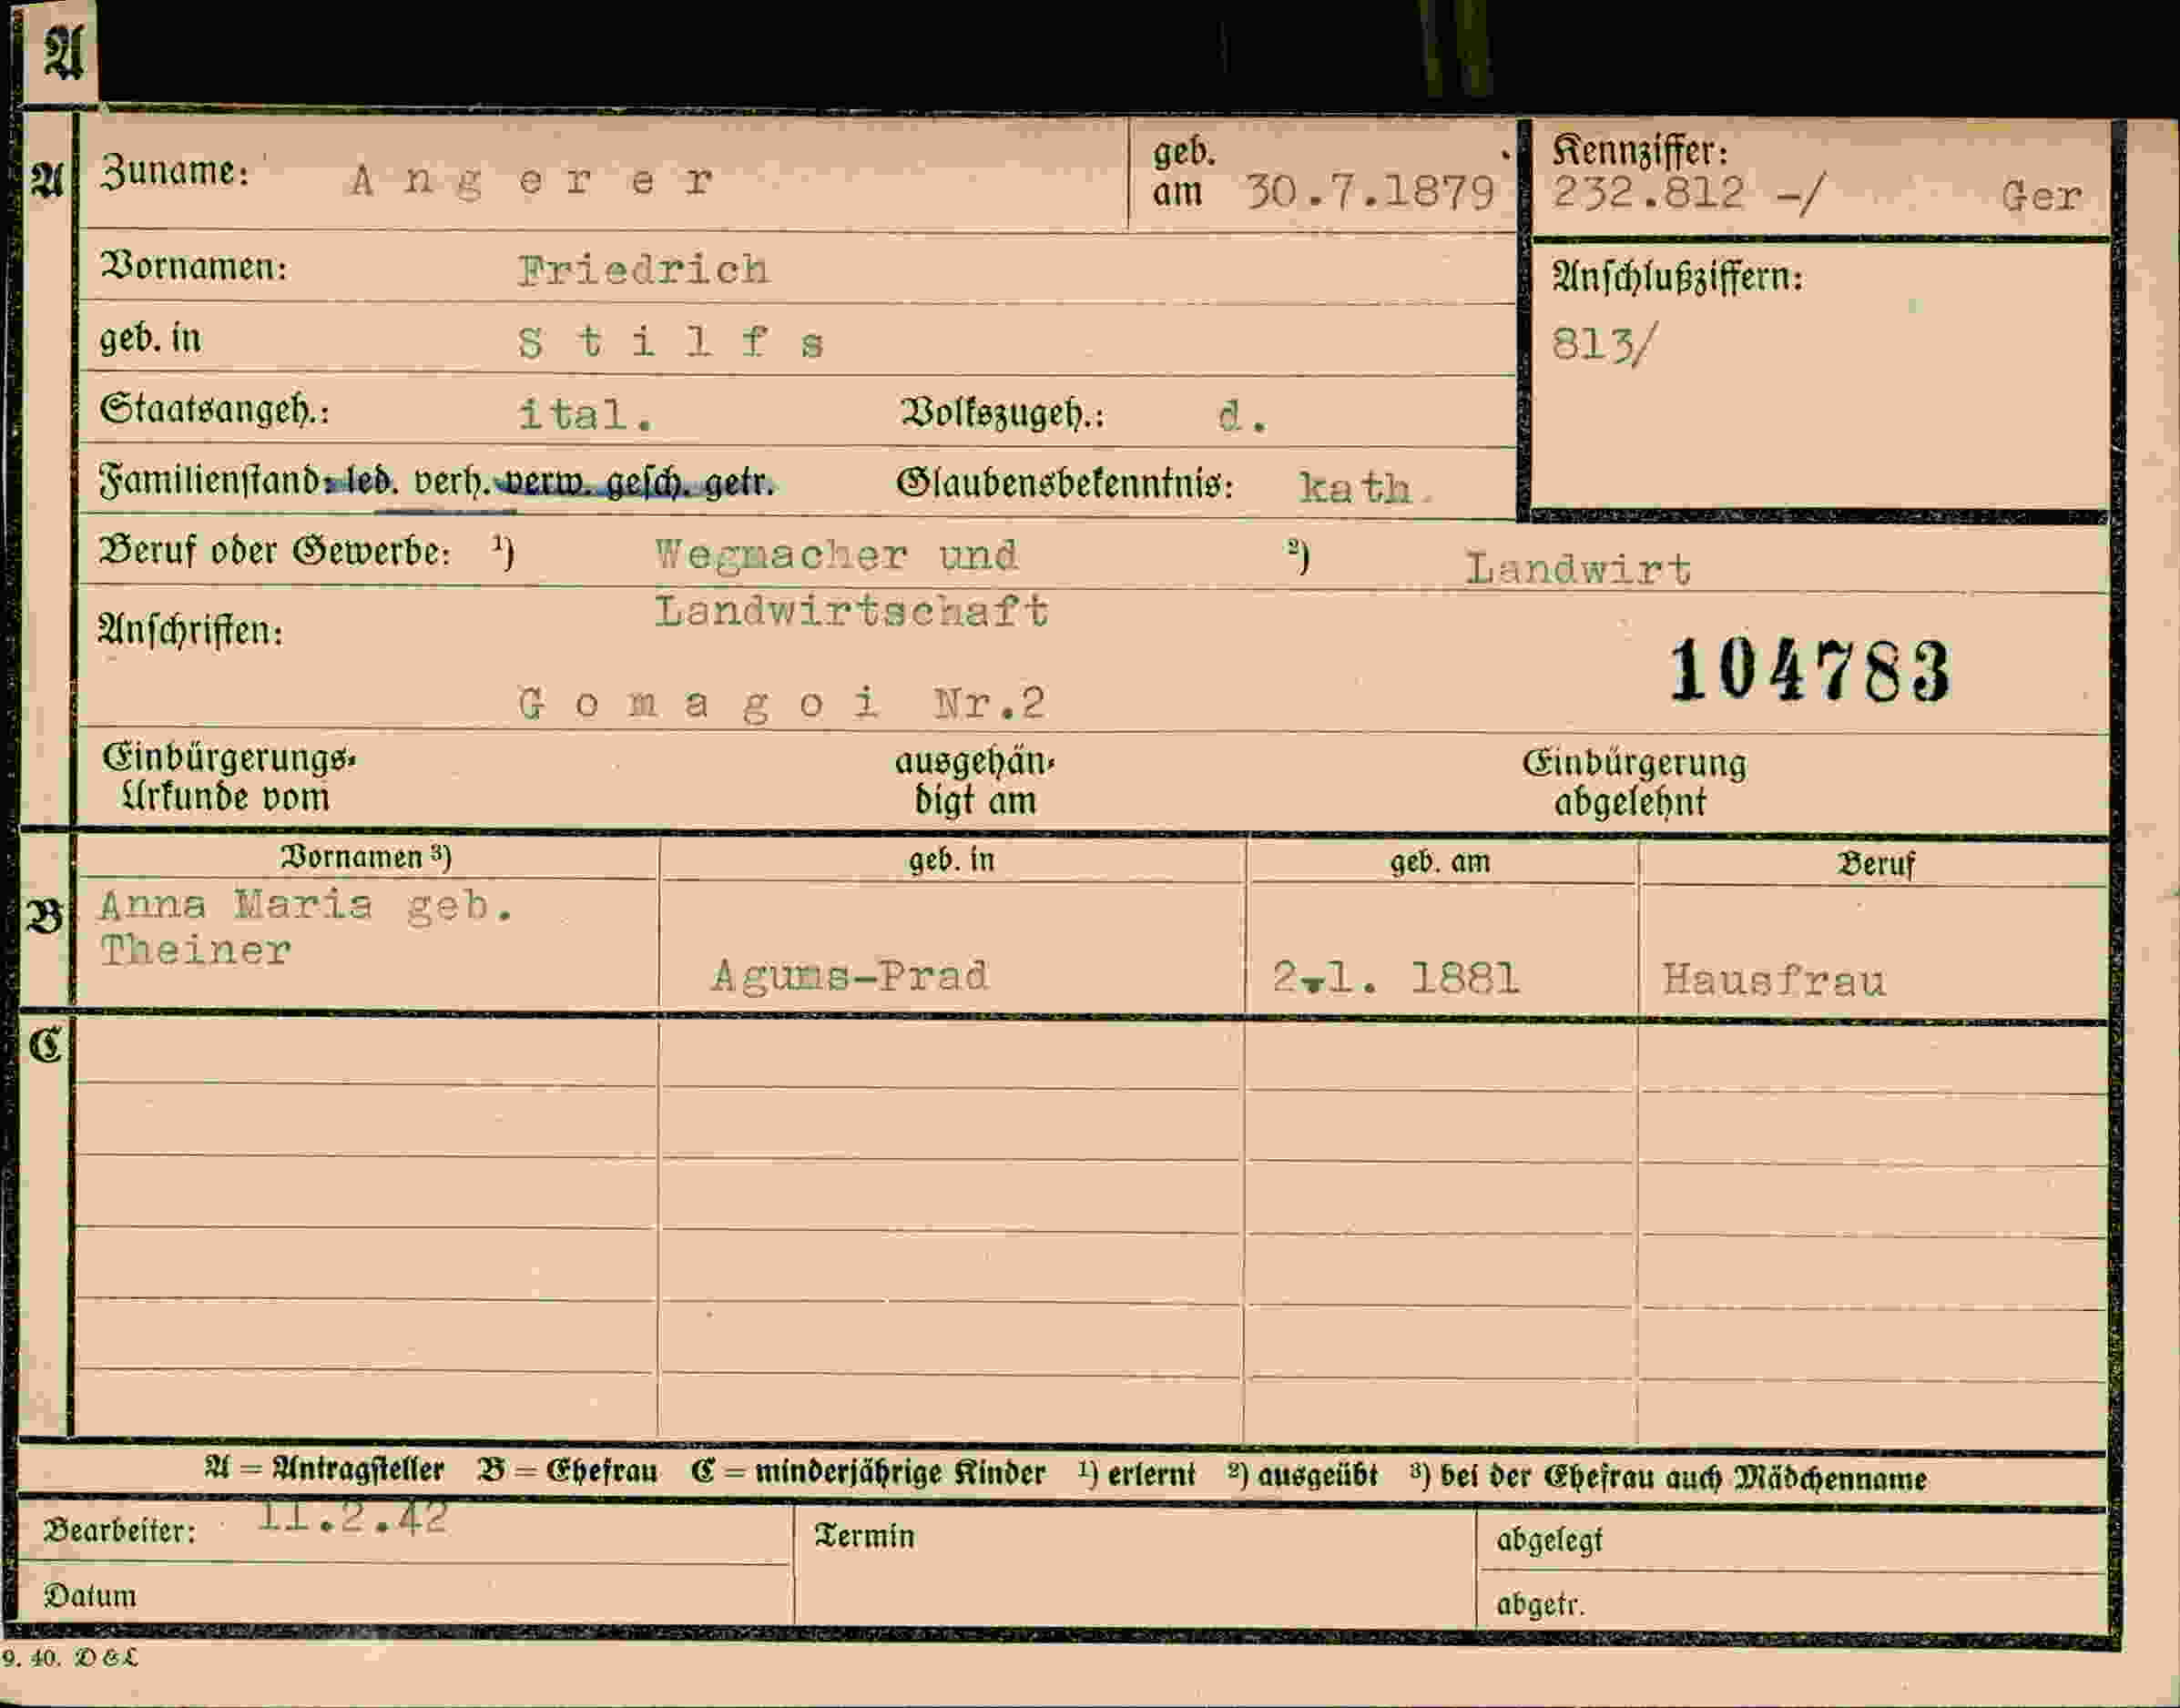 A
A Zuname: Angerer geb. am 30.7.1879 Kennziffer: 232.812 -/ Ger
Vornamen: Friedrich
Anschlußziffern:
geb. in Stilfs 813/
Staatsangeh.: ital. Volkszugeh.: d.
Familienstand: led. verh. verw. gesch. getr. Glaubensbekenntnis: kath.
Beruf oder Gewerbe: 1) Wegmacher und 2) Landwirt
Landwirtschaft
Anschriften:
104783
Gomagoi Nr.2
Einbürgerungs- ausgehän- Einbürgerung
Urkunde vom digt am abgelehnt
Vornamen 3) geb. in geb. am Beruf
B Anna Maria geb.
Theiner
Agums-Prad 2.1. 1881 Hausfrau
C
A = Antragsteller B = Ehefrau C = minderjährige Kinder 1) erlernt 2) ausgeübt 3) bei der Ehefrau auch Mädchenname
Bearbeiter: 11.2.42 Termin abgelegt
Datum abgetr.
9. 40. D & L